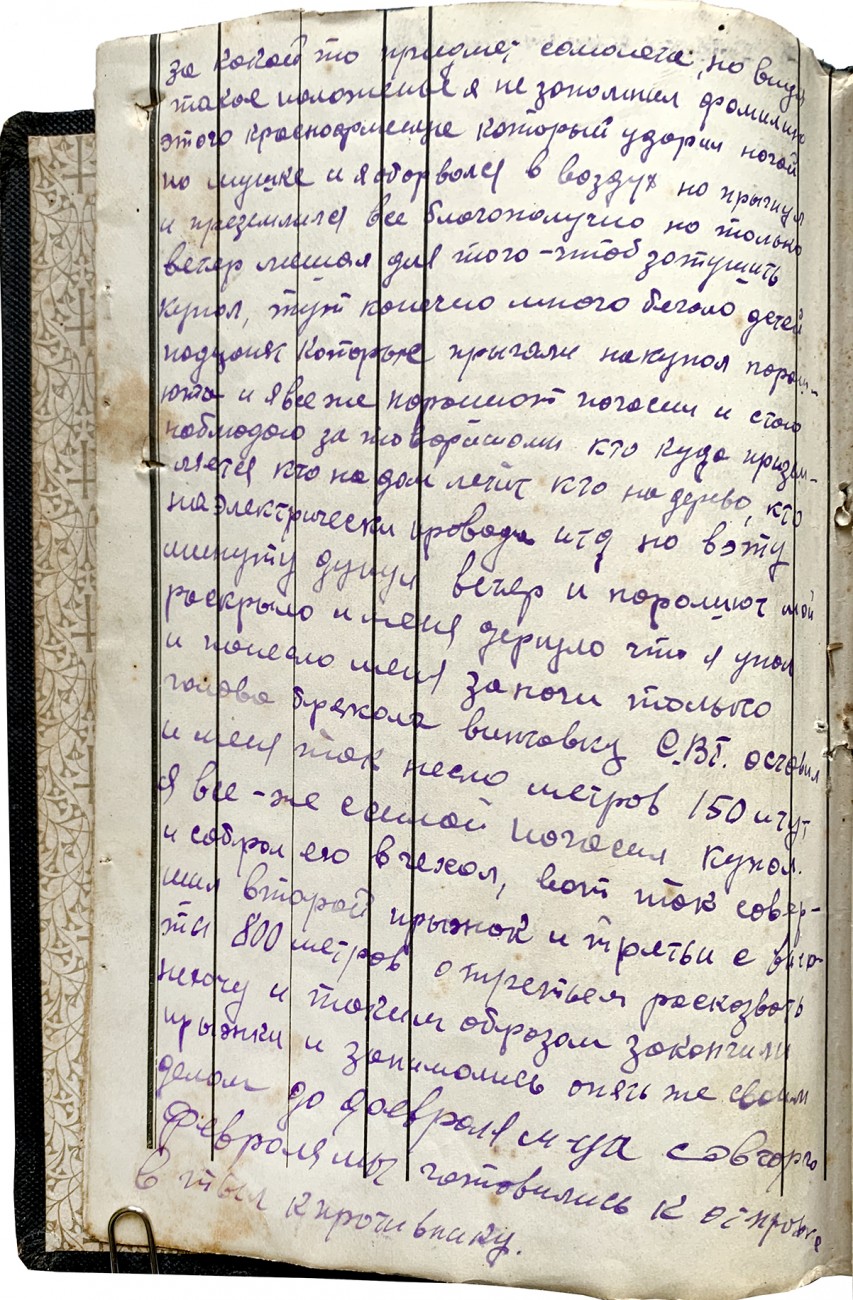 за какой то предмет самолета, но видя
такое положенье я не запомнил фамилию
этого красноармейца который ударил ногой
по мушке и я оборвался в воздух но прыгнул
и преземлился все благополучно но только
ветер мешал для того-чтоб затушить
купол, тут конечно много бегало детей
пацанят которые прыгали накупол параш-
юта и явсе же парашют погасил и стаю
наблюдаю за товарищами кто куда призем-
ляется кто на дом летит кто на дерево, кто
наэлектрически провада итд но вэту
минуту дунул ветер и парашют мой
раскрыло именя дернуло что я упал
и понесло меня запачи только
голова брежала винтовку С.В.Т. оставил
и меня так несло метров 150 итут
Я все-же самой погасил купол.
и собрал его вчехол, вот так совер-
шил второй прыжок и трятьи с высо-
ты 800 метров отретьем расказвать
нехочу и таким образом закончили
прыжки и занимались опять же своим
делом до февраля м-ца совторго
Февраля мы готовились к отправке
в тыл кпротивнику.